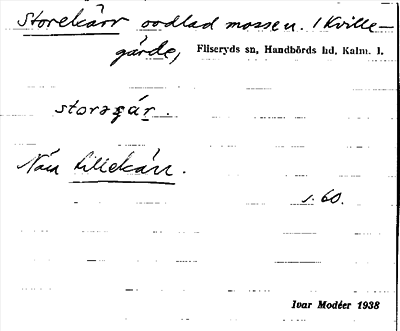 Storekärr oodlad mossen. I Kville-
gärde, Fliseryds sn, Handbörds hd, Kalm. l.
Nära Lillekärr.
s. 60.
Ivar Modéer 1938